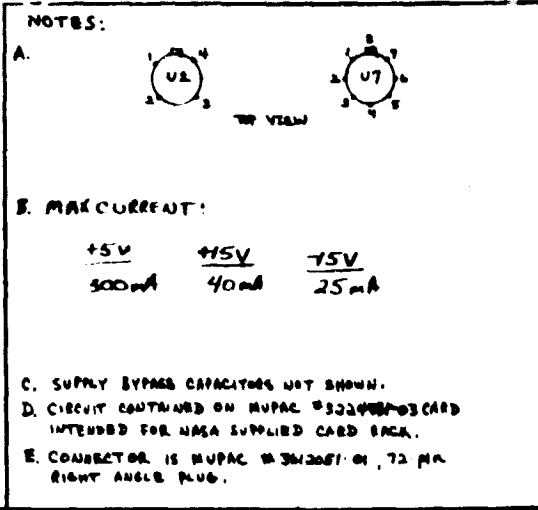 NOTES:
A.
1 4 U2 2 3
8 1 7 2 U7 6 3 5 4
TOP VIEW
B. MAX CURRENT:
+5V +15V -15V
300mA 40mA 25mA
C. SUPPLY BYPASS CAPACITORS NOT SHOWN.
D. CIRCUIT CONTAINED ON MUPAC CARD
INTENDED FOR NASA SUPPLIED CARD RACK.
E. CONNECTOR IS MUPAC , 72 PIN
RIGHT ANGLE PLUG.